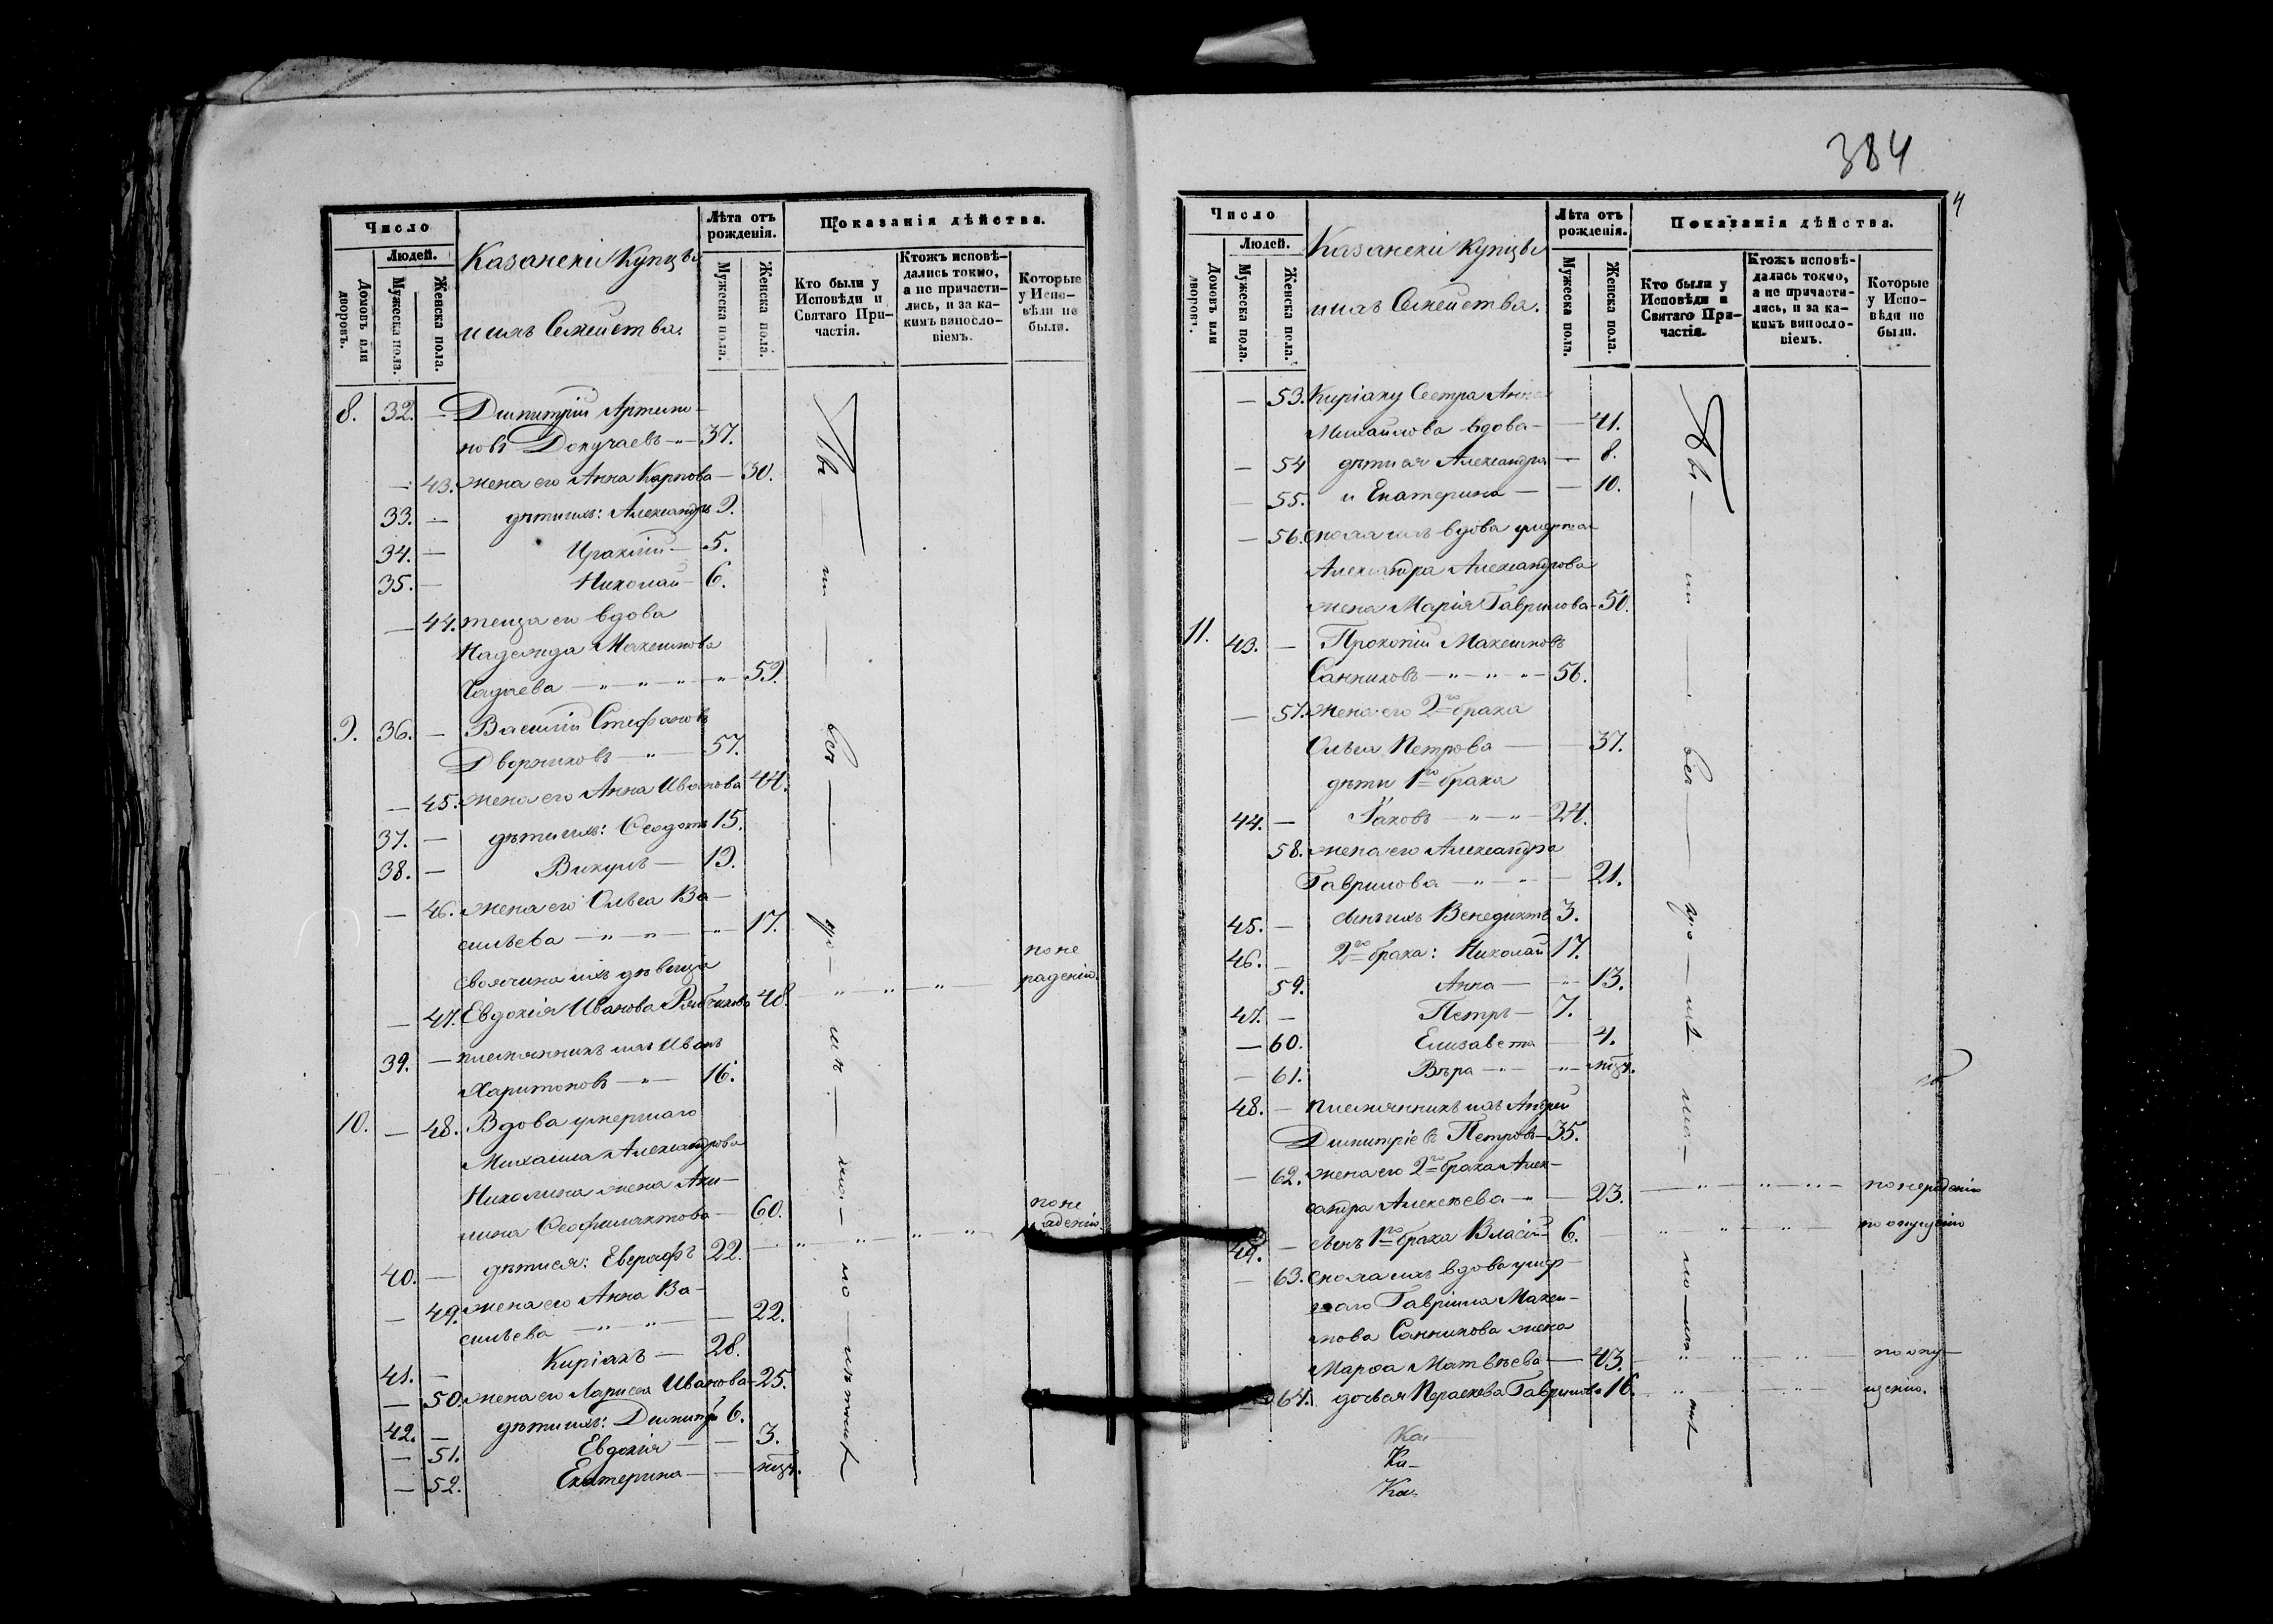 384
4
Число
Людей.
Домовъ или дворовъ.
Мужеска пола.
Женска пола.
Казанскiи Купцы
и ихъ Семейства.
Лѣта отъ рожденія.
Мужеска пола.
Женска пола.
Показанія дѣйства.
Кто были у Исповѣди и Святаго Причастія.
Ктожъ исповѣдались токмо, а не причастились, и за какимъ винословіемъ.
Которые у Исповѣди не были.
8. 32. — Димитрій Артемо-
новъ Докучаевъ — 37.
— 43. жена его Анна Карпова — 30.
33. — дѣти ихъ: Александръ 9.
34. — Ираклій — 5.
35. — Николай — 6.
— 44. теща его вдова
Надежда Максимова
59.
9. 36. — Василій Стефановъ
Дворниковъ — 57.
— 45. жена его Анна Иванова 44.
37. — дѣти ихъ: Ѳеодотъ 15.
38. — Викулъ — 19.
— 46. жена его Ольга Ва-
сильева — 17.
своячина ихъ дѣвица
— 47. Евдокія Иванова 48. по не
радению.
39. — племянникъ ихъ Иванъ
Харитоновъ — 16.
10. — 48. Вдова умершаго
Михаила Александрова
жена Аки-
лина Ѳеофилактова — 60. по не
радению
40. — дѣти ея: Евграфъ 22.
— 49. жена его Анна Ва-
сильева — 22.
41. — Киріакъ — 28.
— 50. жена его Лариса Иванова — 25.
42. — дѣти ихъ: Димитрій 6.
— 51. Евдокія — 3.
— 52. Екатерина —
Число
Людей.
Домовъ или дворовъ.
Мужеска пола.
Женска пола.
Казанскiи Купцы
и ихъ Семейства.
Лѣта отъ рожденія.
Мужеска пола.
Женска пола.
Показанія дѣйства.
Кто были у Исповѣди и Святаго Причастія.
Ктожъ исповѣдались токмо, а не причастились, и за какимъ винословіемъ.
Которые у Исповѣди не были.
— 53. Киріаку Сестра Анна
Михайлова вдова — 41.
— 54 дѣти ея Александра — 8.
— 55. и Екатерина — 10.
— 56. сноха ихъ вдова умершаго
Александра Александрова
жена Марія Гаврилова — 50.
11. 43. — Прокопій Максимовъ
Санниковъ — 56.
— 57. жена его 2го брака
Ольга Петрова — 37.
дѣти 1го брака
44. — Яковъ — 24.
58. жена его Александра
Гаврилова — 21.
45. — сынъ ихъ Венедиктъ 3.
46. — 2го брака: Николай 17.
59. Анна — 13.
47. — Петръ — 7.
— 60. Елизавета — 4.
— 61. Вѣра —
48. — племянникъ ихъ Андрей
Димитріевъ Петровъ — 35.
— 62. жена его 2го брака Алек-
сандра Алексѣева — 23. по нерадению
49. — сынъ 1го брака Власій — 6. по опущению
— 63. сноха ихъ вдова умер-
шаго Гавріила Макси-
мова Санникова жена
Марѳа Матвѣева — 43. по опу-
— 64. дочь ея Параскева Гаврилова 16. щению.
Ка-
Ка-
Ка-